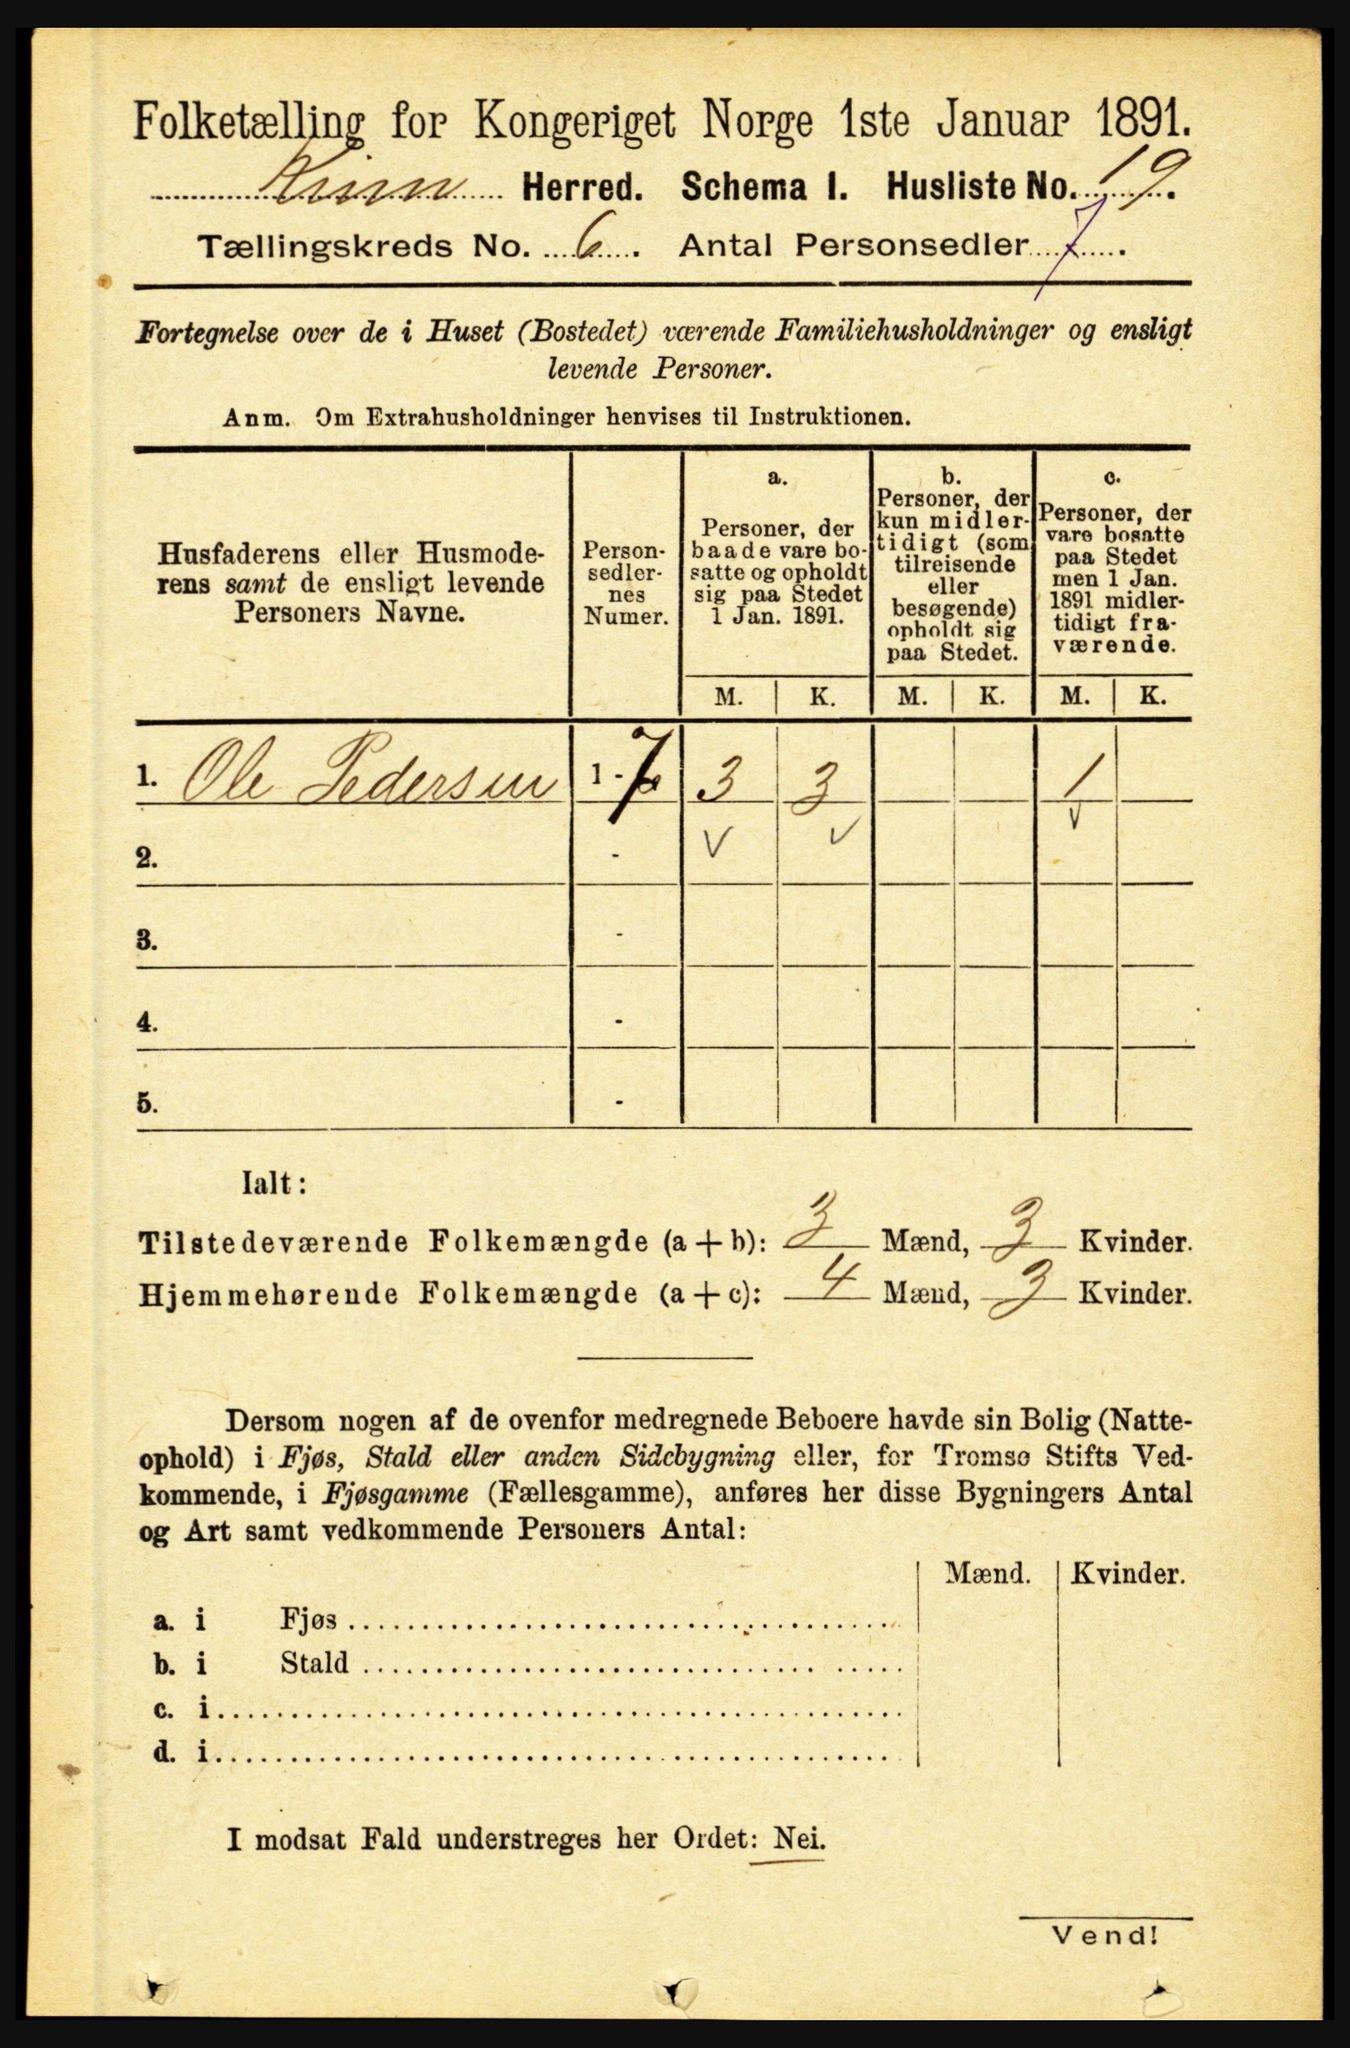 Folketælling for Kongeriget Norge 1ste Januar 1891.
Kinn Herred. Schema I. Husliste No. 19.
Tællingskreds No. 6. Antal Personsedler 7.
Fortegnelse over de i Huset (Bostedet) værende Familiehusholdninger og ensligt
levende Personer.
Anm. Om Extrahusholdninger henvises til Instruktionen.
Husfaderens eller Husmode-
rens samt de ensligt levende
Personers Navne.
Person-
sedler-
nes
Numer.
a.
Personer, der
baade vare bo-
satte og opholdt
sig paa Stedet
1 Jan. 1891.
b.
Personer, der
kun midler-
tidigt (som
tilreisende
eller
besøgende)
opholdt sig
paa Stedet.
c.
Personer, der
vare bosatte
paa Stedet
men 1 Jan.
1891 midler-
tidigt fra-
værende.
M. K. M. K. M. K.
1. Ole Pedersen 1 - 7 3 3 1
2. - v v v
3. -
4. -
5. -
Ialt:
Tilstedeværende Folkemængde (a + b): 3 Mænd, 3 Kvinder.
Hjemmehørende Folkemængde (a + c): 4 Mænd, 3 Kvinder.
Dersom nogen af de ovenfor medregnede Beboere havde sin Bolig (Natte-
ophold) i Fjøs, Stald eller anden Sidebygning eller, for Tromsø Stifts Ved-
kommende, i Fjøsgamme (Fællesgamme), anføres her disse Bygningers Antal
og Art samt vedkommende Personers Antal:
Mænd. Kvinder.
a. i Fjøs
b. i Stald
c. i
d. i
I modsat Fald understreges her Ordet: Nei.
Vend!